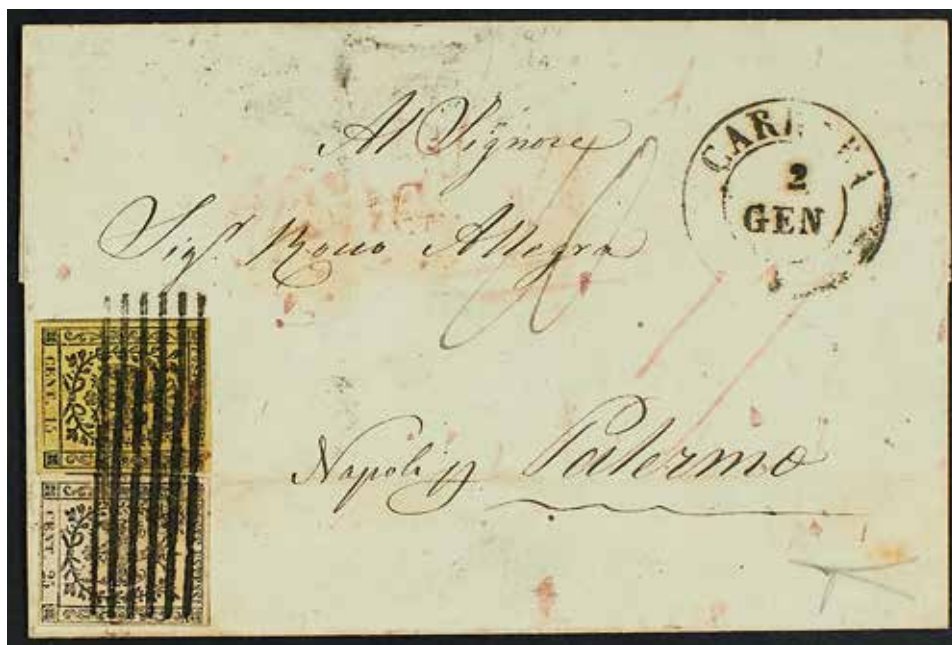 Al Signore
Sig.r Rocco Allegra
Napoli p Palermo
2
GEN
CENT. 15
CENT. 25